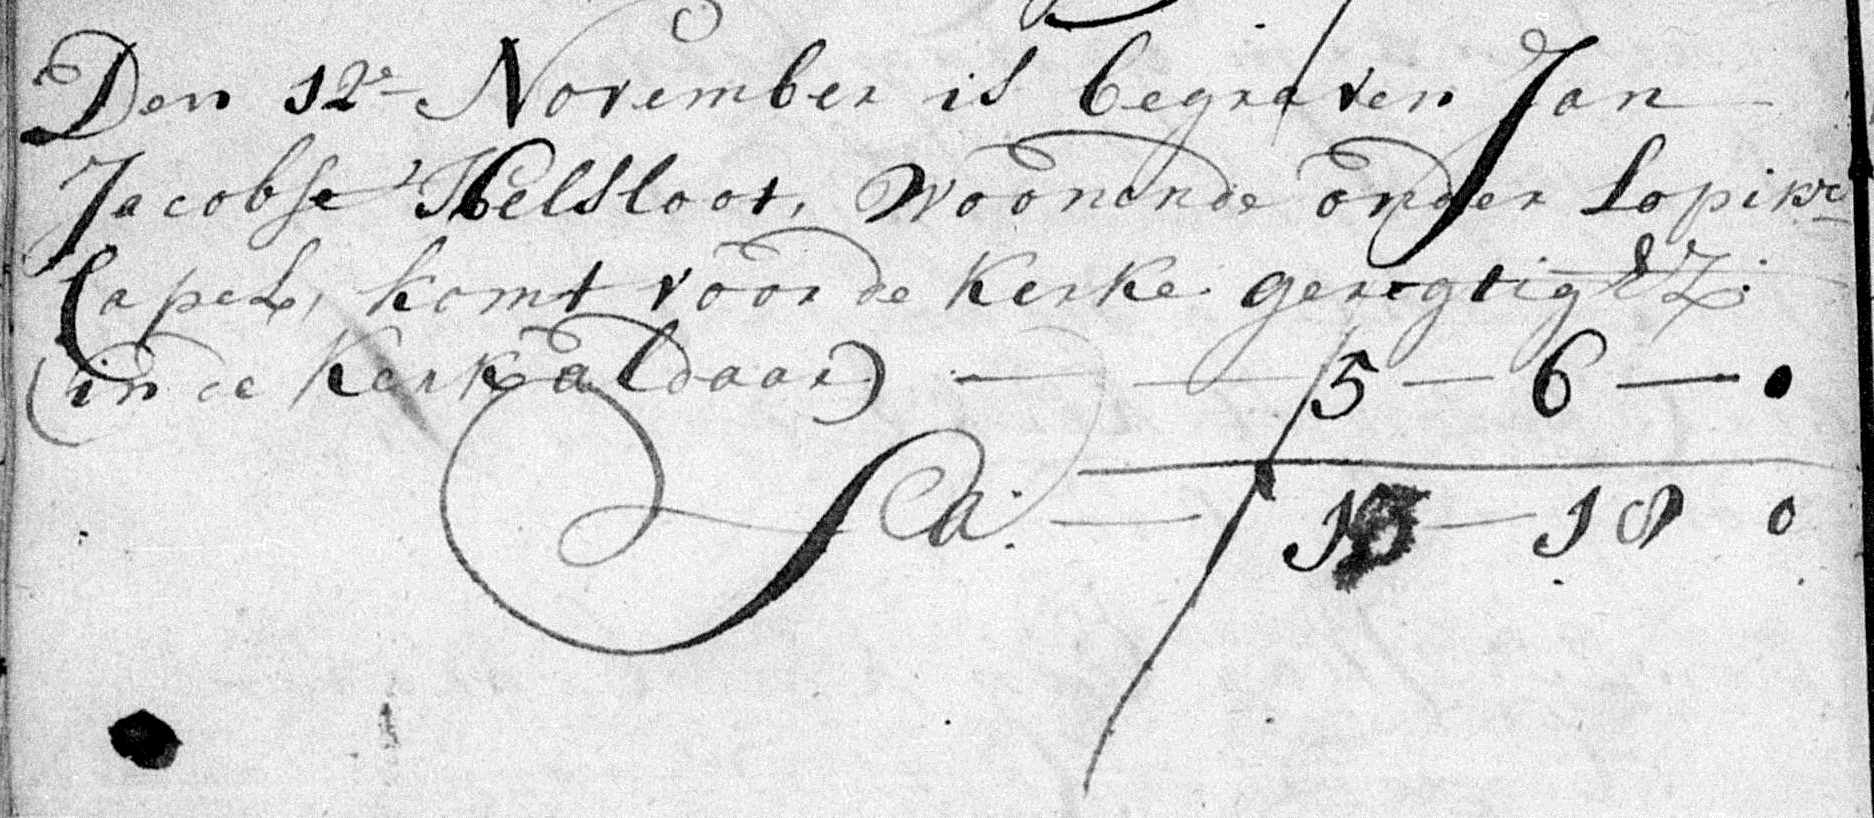 Den 12e November is begraven Jan
Jacobse Helsloot, Woonende onder Lopikr
Capel, komt voor de Kerke geregtigh:
(in de Kerk aldaar) — — 5 — 6 — .
Sa. — — 18 0